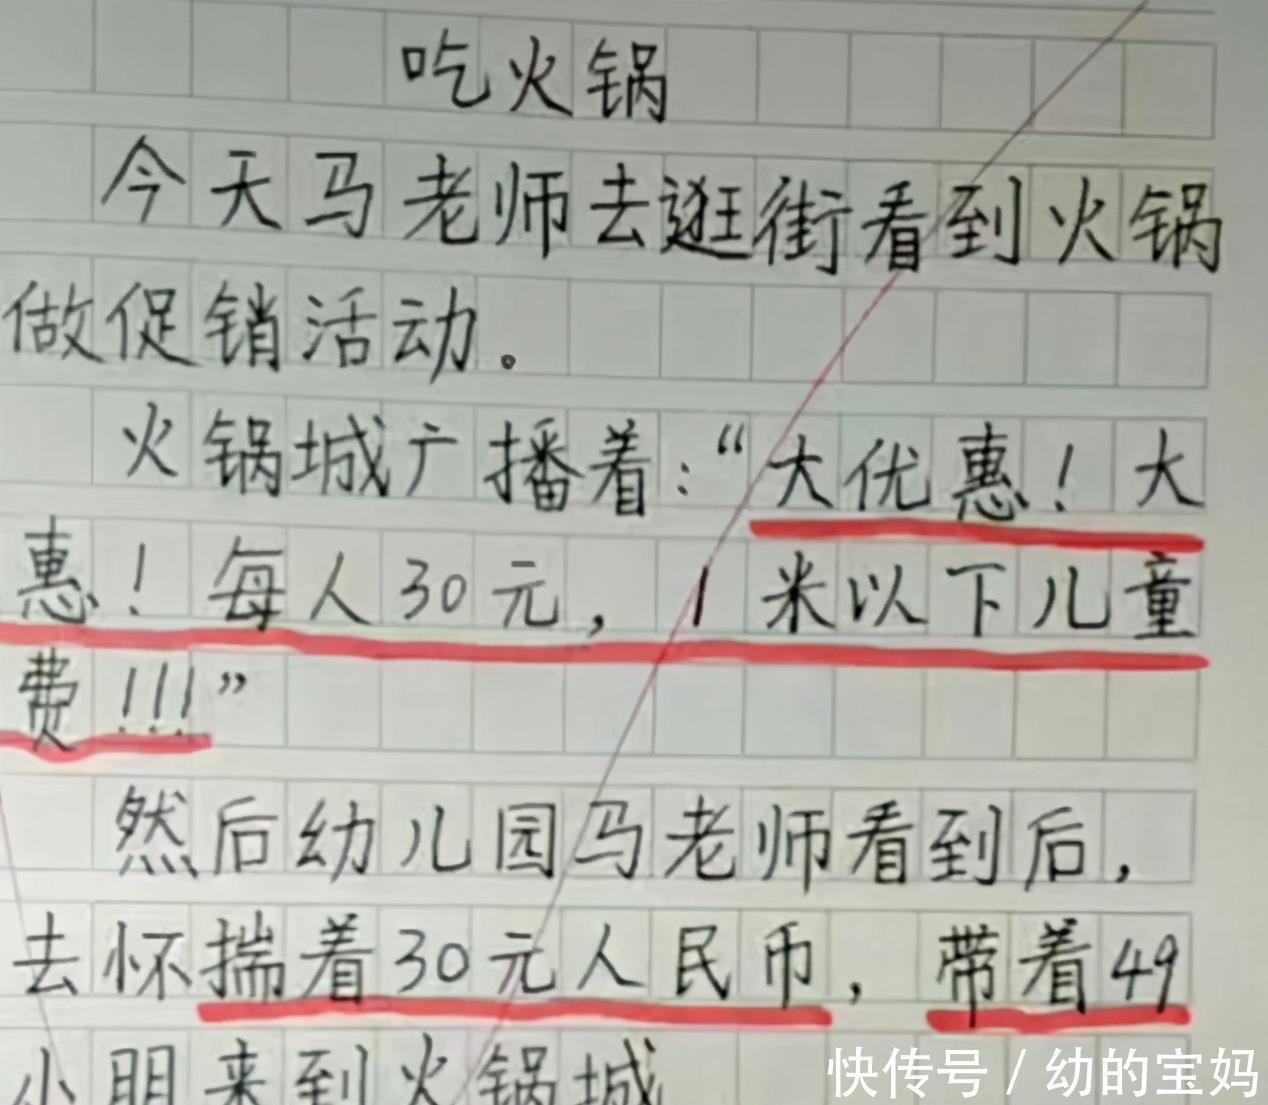 吃火锅
今天马老师去逛街看到火锅
做促销活动。
火锅城广播着:“大优惠！大
惠！每人30元，1米以下儿童
费!!!”
然后幼儿园马老师看到后，
去怀揣着30元人民币，带着49
小朋来到火锅城
快传号/幼的宝妈